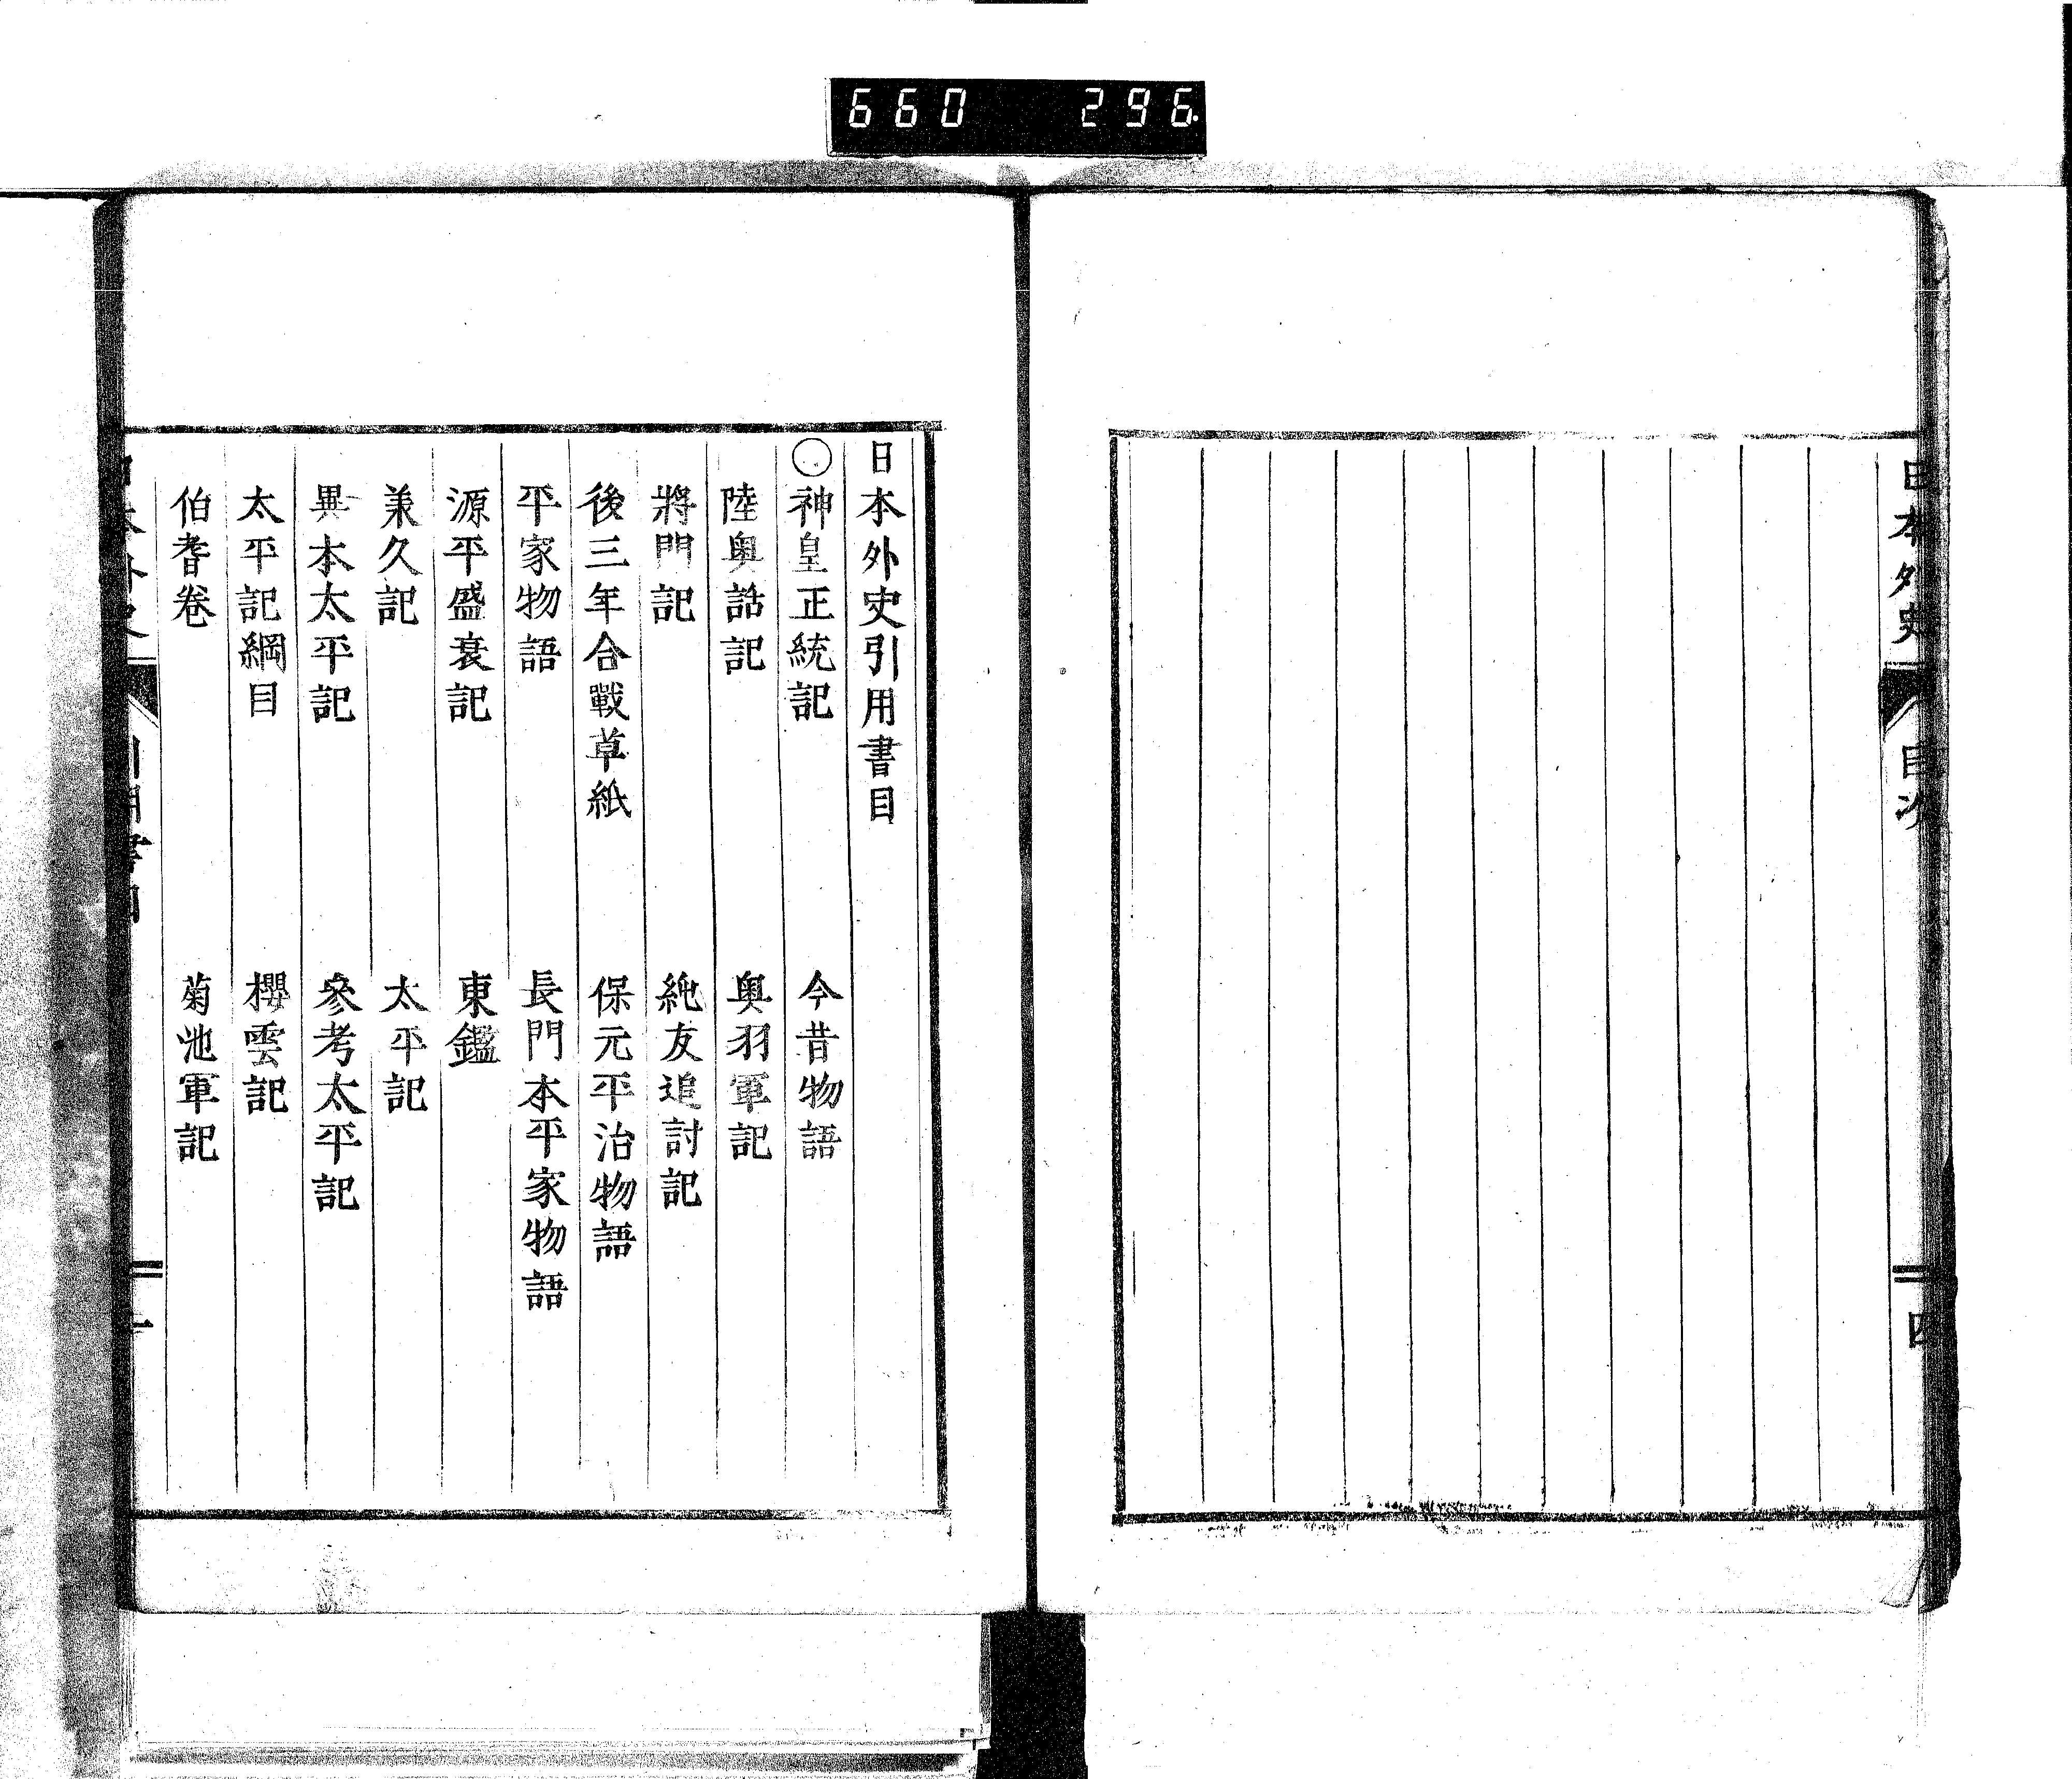 660 296
日本外史
目次
四
日本外史引用書目
○神皇正統記 今昔物語
陸奥話記 奥羽軍記
將門記 純友追討記
後三年合戰草紙 保元平治物語
平家物語 長門本平家物語
源平盛衰記 東鑑
兼久記 太平記
異本太平記 參考太平記
太平記綱目 櫻雲記
伯耆卷 菊池軍記